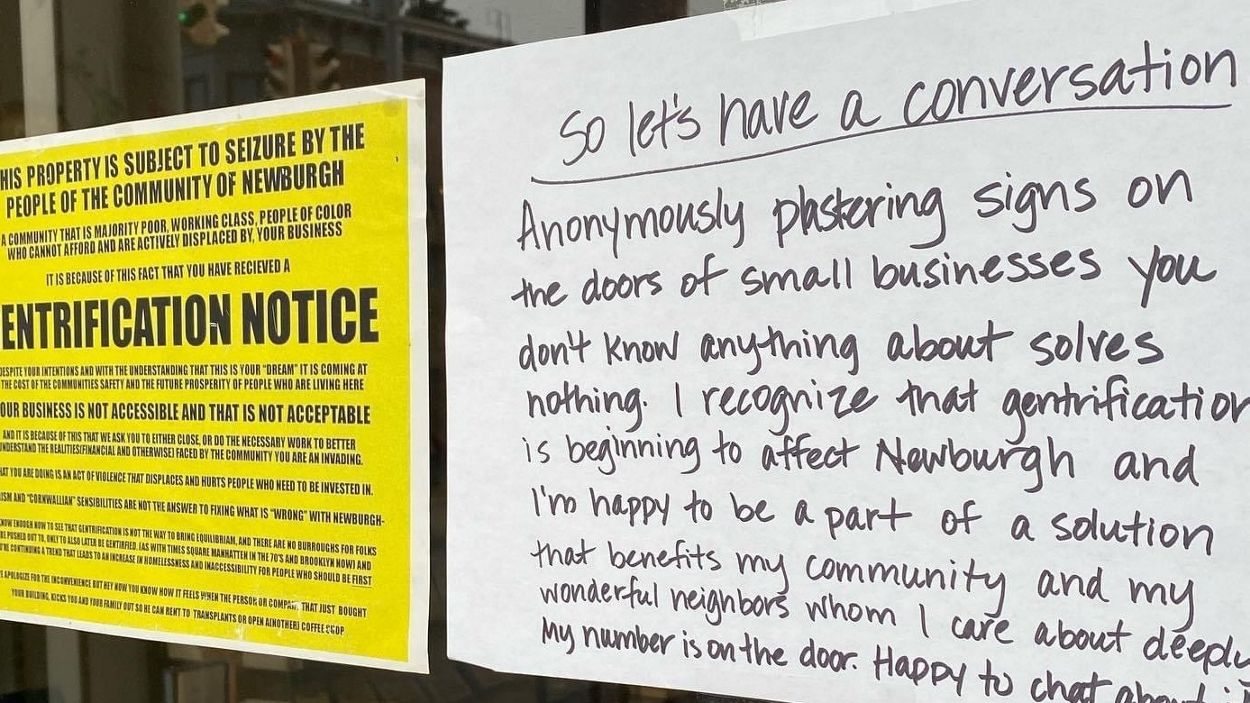 HIS PROPERTY IS SUBJECT TO SEIZURE BY THE
PEOPLE OF THE COMMUNITY OF NEWBURGH
A COMMUNITY THAT IS MAJORITY POOR, WORKING CLASS, PEOPLE OF COLOR
WHO CANNOT AFFORD AND ARE ACTIVELY DISPLACED BY, YOUR BUSINESS
IT IS BECAUSE OF THIS FACT THAT YOU HAVE RECIEVED A
ENTRIFICATION NOTICE
DESPITE YOUR INTENTIONS AND WITH THE UNDERSTANDING THAT THIS IS YOUR "DREAM" IT IS COMING AT
THE COST OF THE COMMUNITIES SAFETY AND THE FUTURE PROSPERITY OF PEOPLE WHO ARE LIVING HERE
OUR BUSINESS IS NOT ACCESSIBLE AND THAT IS NOT ACCEPTABLE
AND IT IS BECAUSE OF THIS THAT WE ASK YOU TO EITHER CLOSE, OR DO THE NECESSARY WORK TO BETTER
NDERSTAND THE REALITIES(FINANCIAL AND OTHERWISE) FACED BY THE COMMUNITY YOU ARE AN INVADING.
AT YOU ARE DOING IS AN ACT OF VIOLENCE THAT DISPLACES AND HURTS PEOPLE WHO NEED TO BE INVESTED IN.
ISM AND "CORNWALLIAN" SENSIBILITIES ARE NOT THE ANSWER TO FIXING WHAT IS "WRONG" WITH NEWBURGH-
NOW ENOUGH NOW TO SEE THAT GENTRIFICATION IS NOT THE WAY TO BRING EQUILIBRIAM, AND THERE ARE NO BURROUGHS FOR FOLKS
BE PUSHED OUT TO, ONLY TO ALSO LATER BE GENTIRFIED. (AS WITH TIMES SQUARE MANHATTEN IN THE 70'S AND BROOKLYN NOW) AND
'RE CONTINUING A TREND THAT LEADS TO AN INCREASE IN HOMELESSNESS AND INACCESSIBILITY FOR PEOPLE WHO SHOULD BE FIRST
E APOLOGIZE FOR THE INCONVENIENCE BUT HEY NOW YOU KNOW HOW IT FEELS WHEN THE PERSON OR COMPANY THAT JUST BOUGHT
YOUR BUILDING, KICKS YOU AND YOUR FAMILY OUT SO HE CAN RENT TO TRANSPLANTS OR OPEN A(NOTHER) COFFEE SHOP
So let's have a conversation
Anonymously plastering signs on
the doors of small businesses you
don't know anything about solves
nothing. I recognize that gentrification
is beginning to affect Newburgh and
I'm happy to be a part of a solution
that benefits my community and my
wonderful neighbors whom I care about deeply
My number is on the door. Happy to chat about it